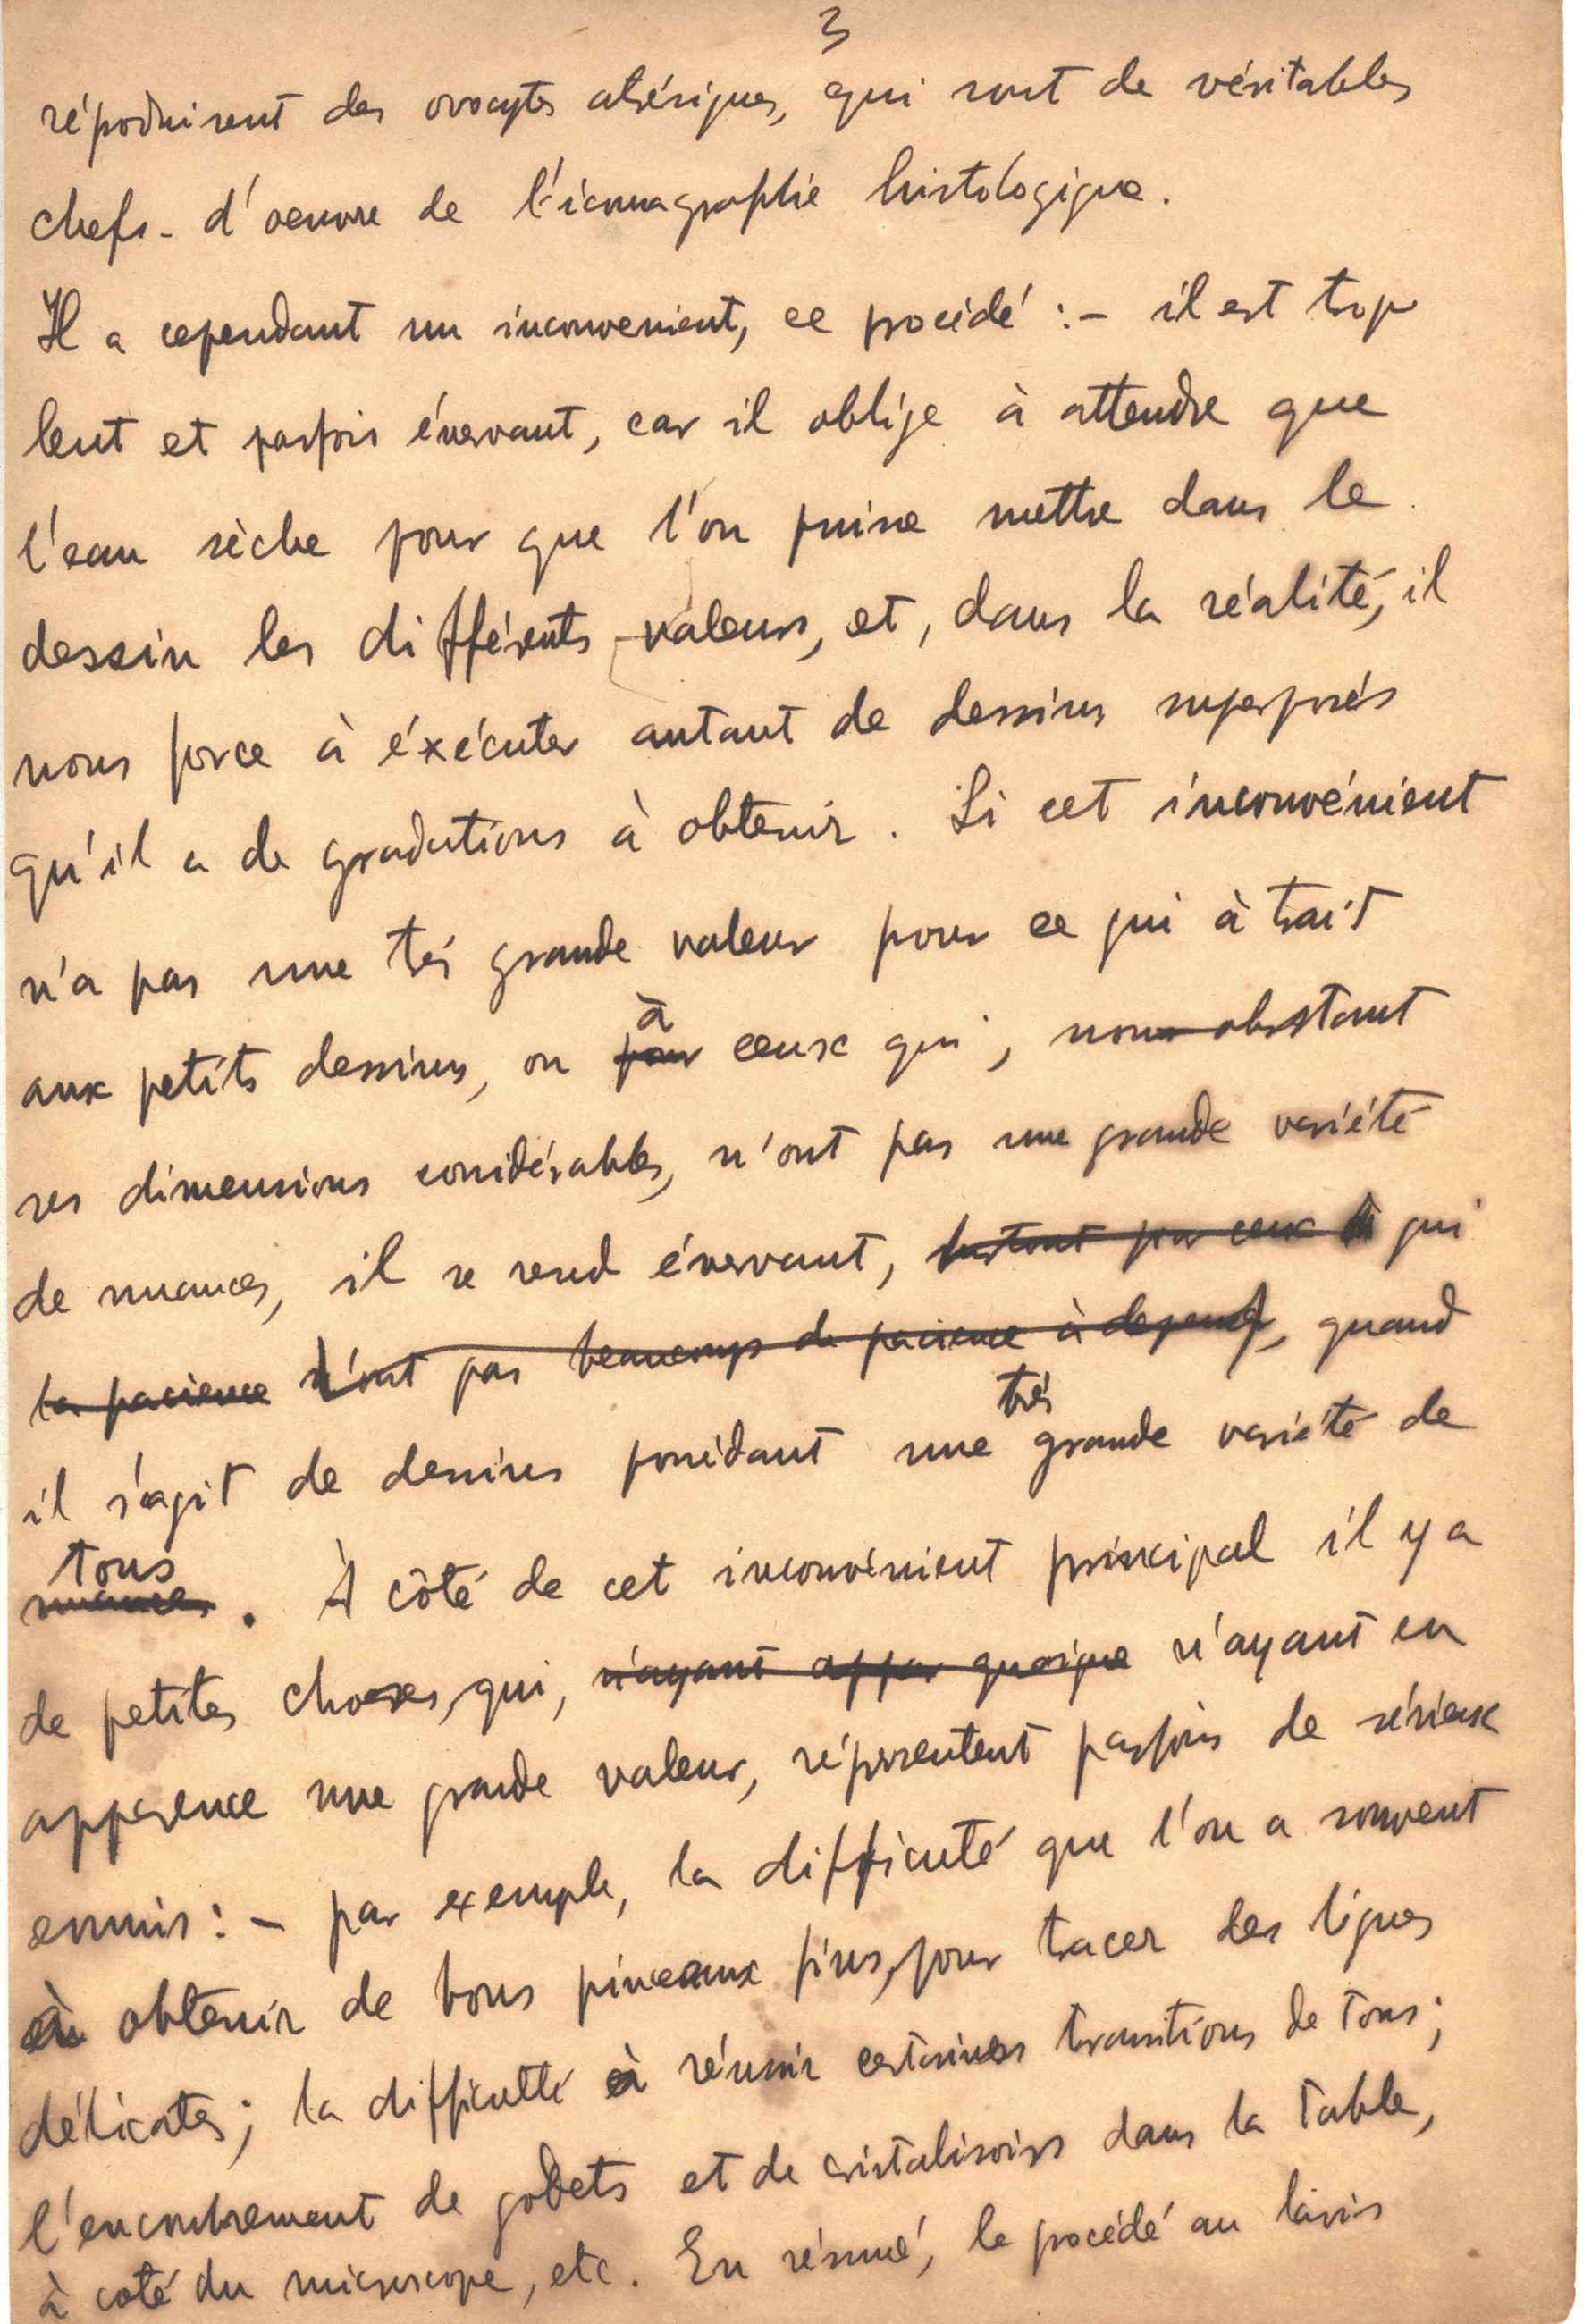 3
réproduisent des ovocytes atrésiques, qui sont de véritables
chefs-d'oeuvre de l'iconagraphie histologique.
Il a cependant un inconvenient, ce procédé :- il est trop
lent et parfois énervant, car il oblige à attendre que
l'eau sèche pour que l'on puisse mettre dans le
dessin les différents valeurs, et, dans la réalité, il
nous force à éxécuter autant de dessins superposés
qu'il a de gradations à obtenir. Si cet inconvénient
n'a pas une très grande valeur pour ce qui à trait
à
aux petits dessins, ou pour ceux qui, non obstant
ses dimensions considérables, n'ont pas une grande variété
de nuances, il se rend énervant, surtout pour ceux qui
la pacience n'ont pas beaucoup de pacience à depenser, quand
très
il s'agit de dessins possédant une grande variété de
tons
nuances. À côté de cet inconvénient principal il y a
de petites choses, qui, n'ayant appar quoique n'ayant en
apparence une grande valeur, réprésentent parfois de sérieux
ennuis :- par exemple, la difficuté que l'on a souvent
à obtenir de bons pinceaux fins, pour tracer des lignes
délicates; la difficulté à réussir certaines transitions de tons;
l'encombrement de godets et de cristalisoirs dans la table,
à coté du microscope, etc. En résumé, le procédé au lavis